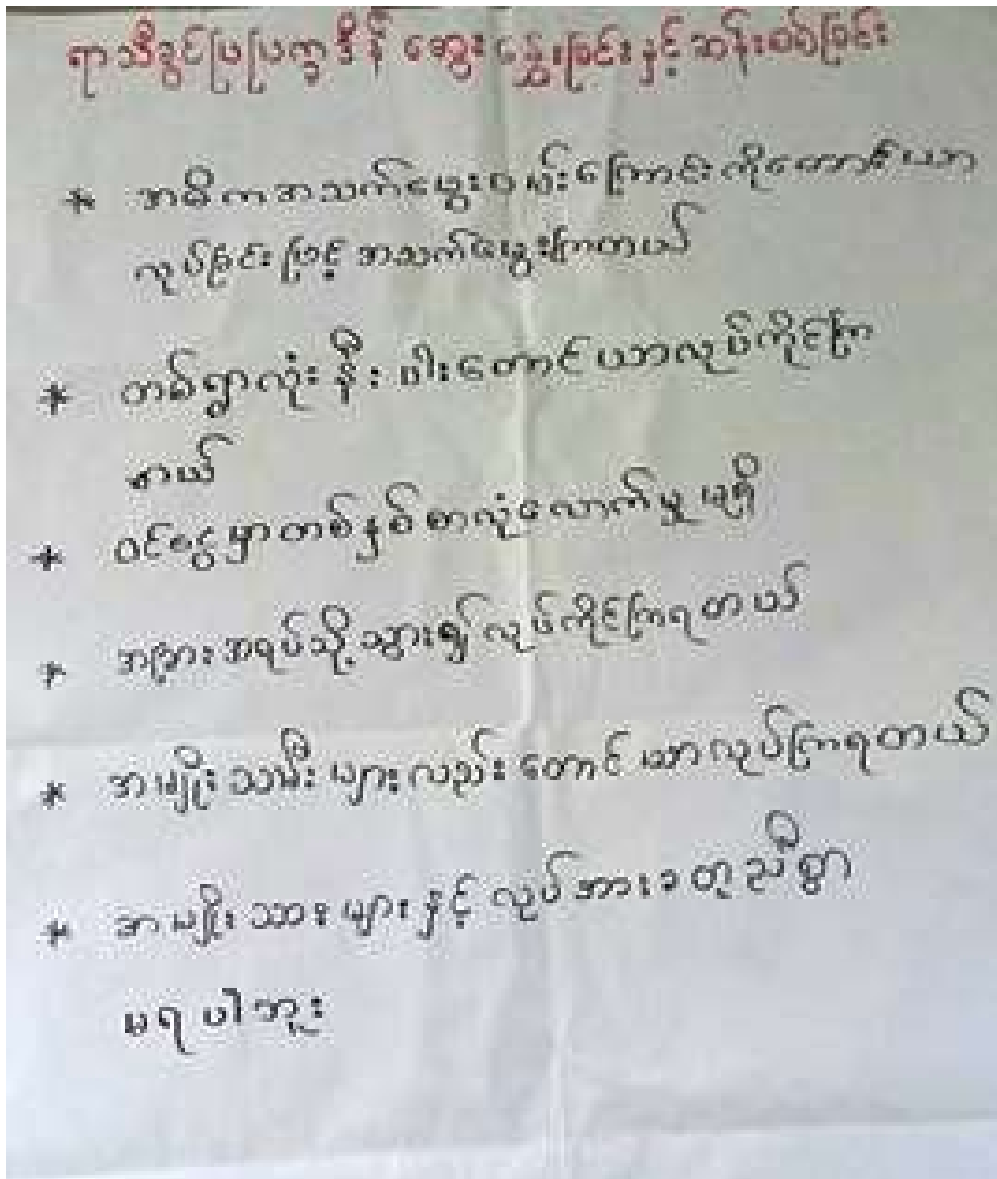 ရာသီခွင်ပြပြက္ခဒိန် ဆွေးနွေးခြင်းနှင့်ဆန်းစစ်ခြင်း
* အဓိကအသက်မွေးဝမ်းကြောင်းကိုတောင်ယာ
လုပ်ခြင်းဖြင့် အသက်မွေးကြတယ်
* တစ်ရွာလုံးနီးပါးတောင်ယာလုပ်ကိုင်ကြ
တယ်
* ဝင်ငွေမှာတစ်နှစ်စာလုံလောက်မှုမရှိ
* အခြားအရပ်သို့သွား၍လုပ်ကိုင်ကြရတယ်
* အမျိုးသမီးများလည်းတောင်ယာလုပ်ကြရတယ်
* အမျိုးသားများနှင့်လုပ်အားခတူညီစွာ
မရပါဘူး